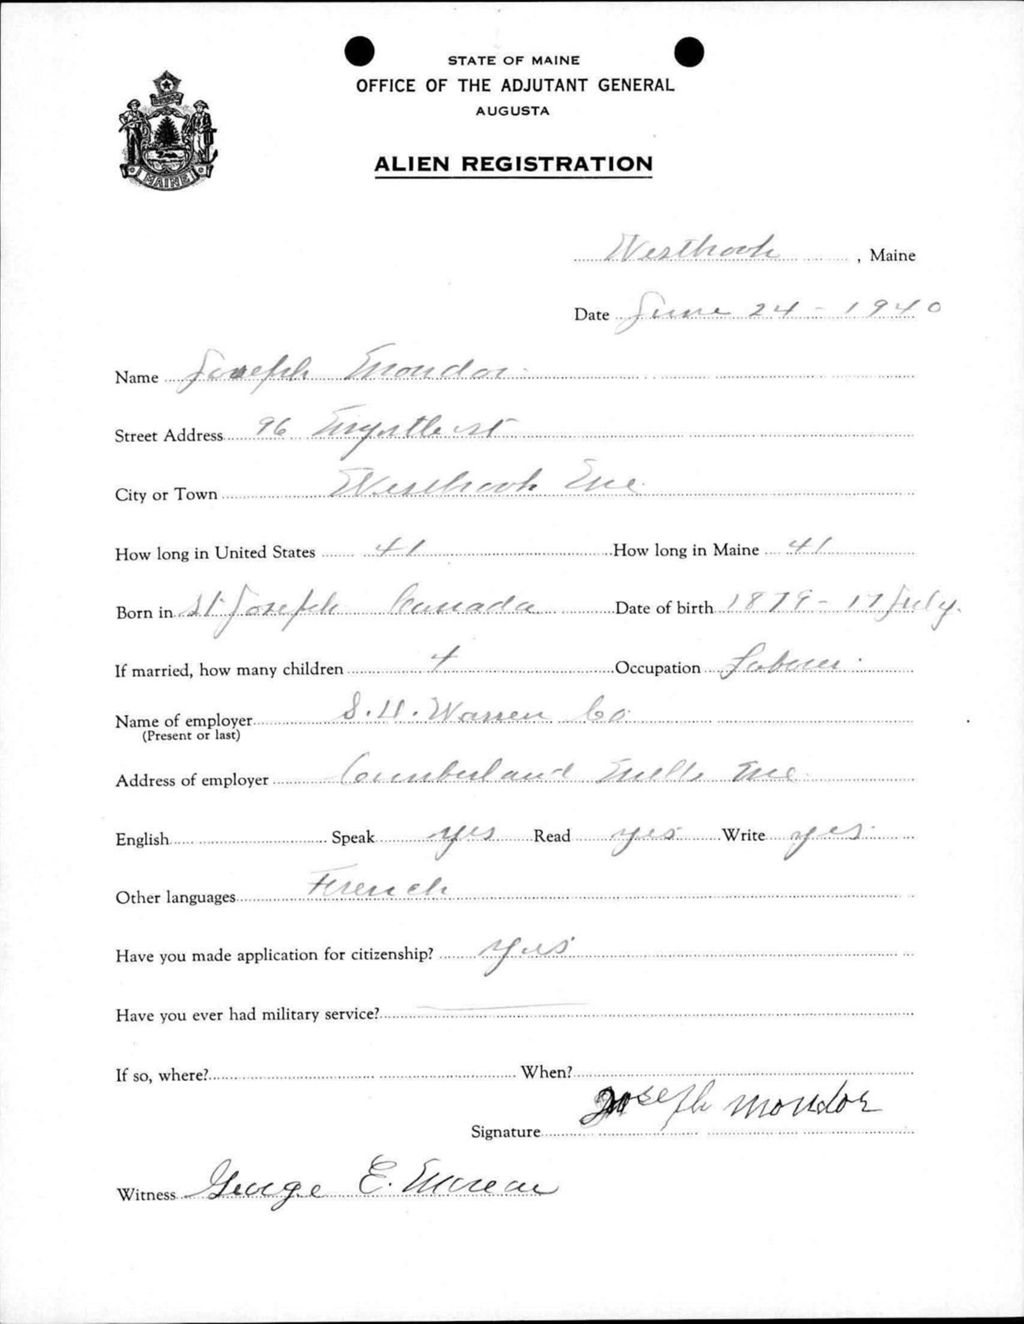 STATE OF MAINE
OFFICE OF THE ADJUTANT GENERAL
AUGUSTA
MAINE
ALIEN REGISTRATION
Westbrook, Maine
Date June 24 - 1940
Name Joseph Mondor
Street Address 96 Myrtle st
City or Town Westbrook Me
How long in United States 41 How long in Maine 41
Born in St Joseph Canada Date of birth 1879 - 17 July.
If married, how many children 4 Occupation Laborer
Name of employer S. D. Warren Co
(Present or last)
Address of employer Cumberland Mills Me
English Speak yes Read yes Write yes
Other languages French
Have you made application for citizenship? yes
Have you ever had military service?
If so, where? When?
Signature Joseph Mondor
Witness George E. Moreau